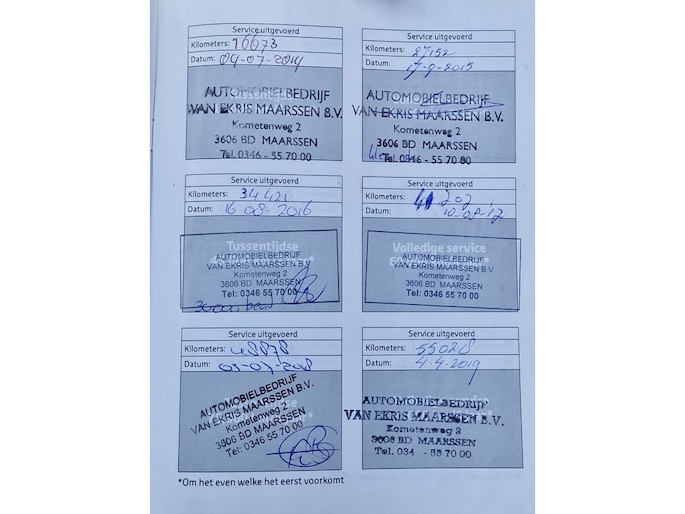 Service uitgevoerd
Kilometers: 16673
Datum: 04-07-2014
Tussentijdse
AUTOMOBIELBEDRIJF
VAN EKRIS MAARSSEN B.V.
Kometenweg 2
3606 BD MAARSSEN
Tel. 0346 - 55 70 00
Service uitgevoerd
Kilometers: 27152
Datum: 17-9-2015
AUTOMOBIELBEDRIJF
VAN EKRIS MAARSSEN B.V.
Kometenweg 2
3606 BD MAARSSEN
Tel. 0346 - 55 70 00
Service uitgevoerd
Kilometers: 34421
Datum: 16 08-2016
Tussentijdse
AUTOMOBIELBEDRIJF
VAN EKRIS MAARSSEN B.V
Kometenweg 2
3606 BD MAARSSEN
Tel: 0346 55 70 00
Service uitgevoerd
Kilometers: 41 202
Datum: 10-08-17
Volledige service
AUTOMOBIELBEDRIJF
VAN EKRIS MAARSSEN B.V
Kometenweg 2
3606 BD MAARSSEN
Tel: 0346 55 70 00
Service uitgevoerd
Kilometers: 48878
Datum: 03-07-2018
AUTOMOBIELBEDRIJF
VAN EKRIS MAARSSEN B.V.
Kometenweg 2
3606 BD MAARSSEN
Tel: 0346 55 70 00
Service uitgevoerd
Kilometers: 55028
Datum: 4-4-2019
AUTOMOBIELBEDRIJF
VAN EKRIS MAARSSEN B.V.
Kometenweg 2
3606 BD MAARSSEN
Tel. 034 - 55 70 00
*Om het even welke het eerst voorkomt